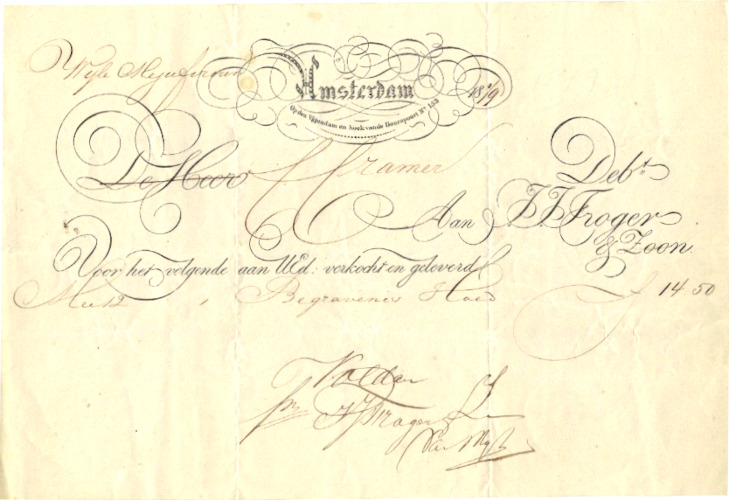 Wyle Mejufvrouw
Amsterdam 1879
Op den Uppendam en hoek van de Huurepoort No. 153
De Heer Cramer Debt.
Aan J. J. Froger
& Zoon.
Voor het volgende aan UEd: verkocht en geleverd
Begravenis Hoed f 14 50
Voldaan
JJ Froger Zn